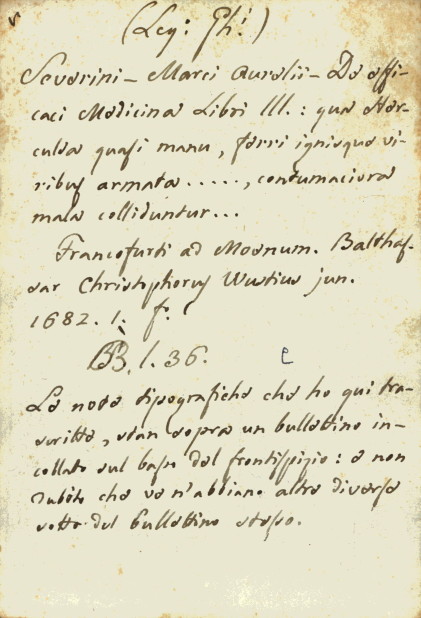 (Leg: Ph!)
Severini – Marci Aurelii – De effi-
caci Medicina Libri III.: qua Her-
culea quasi manu, ferri ignisque vi-
ribus armata ....., contumaciora
mala colliduntur...
Francofurti ad Moenum. Balthas-
sar Christophorus Wustius jun.
1682. 1. f.
BB. l. 36. e
Le note tipografiche che ho qui tra-
scritte, stan sopra un bullettino in-
collato sul basso del frontispizio: e non
dubito che ve n'abbiano altre diverse
sotto del bullettino stesso.